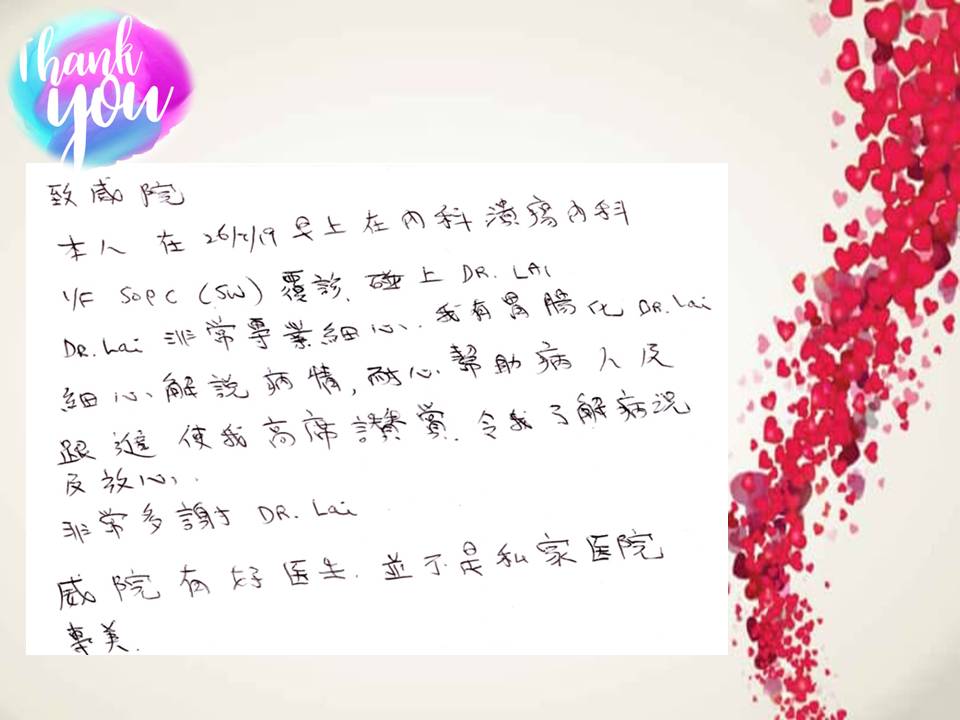 Thank
you
致威院
本人 在 26/2/19 早上在內科潰瘍內科
1/F SOPC (SW) 覆診. 碰上 DR. LAI
DR. Lai 非常專業細心. 我有胃腸化 DR. Lai
細心解說病情, 耐心幫助病人及
跟進 使我高度讚賞. 令我了解病況
及放心.
非常多謝 DR. Lai
威院有好医生. 並不是私家医院
專美.